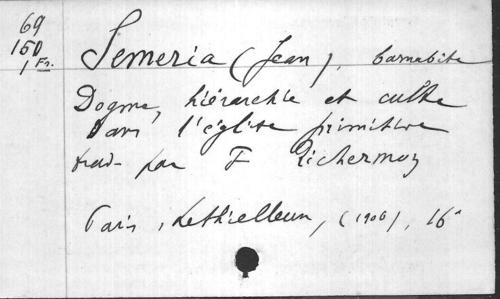 69
150
1 Fr.
Semeria (Jean), barnabite
Dogme, hiérarchie et culte
dans l'église primitive
trad. par F Richermoz
Paris, Lethielleux, (1906), 16°